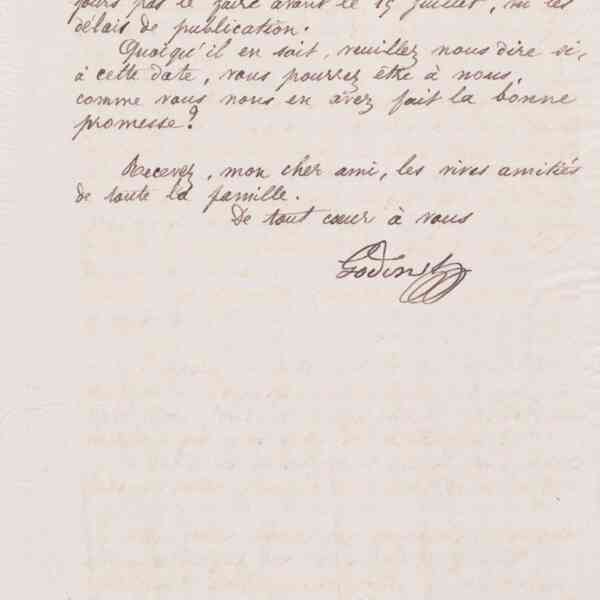 jours pas le faire avant le 15 juillet, vu les
délais de publication.
Quoiqu'il en soit, veuillez nous dire si,
à cette date, vous pourrez être à nous,
comme vous nous en avez fait la bonne
promesse?
Recevez, mon cher ami, les vives amitiés
de toute la famille.
De tout cœur à vous
Godin